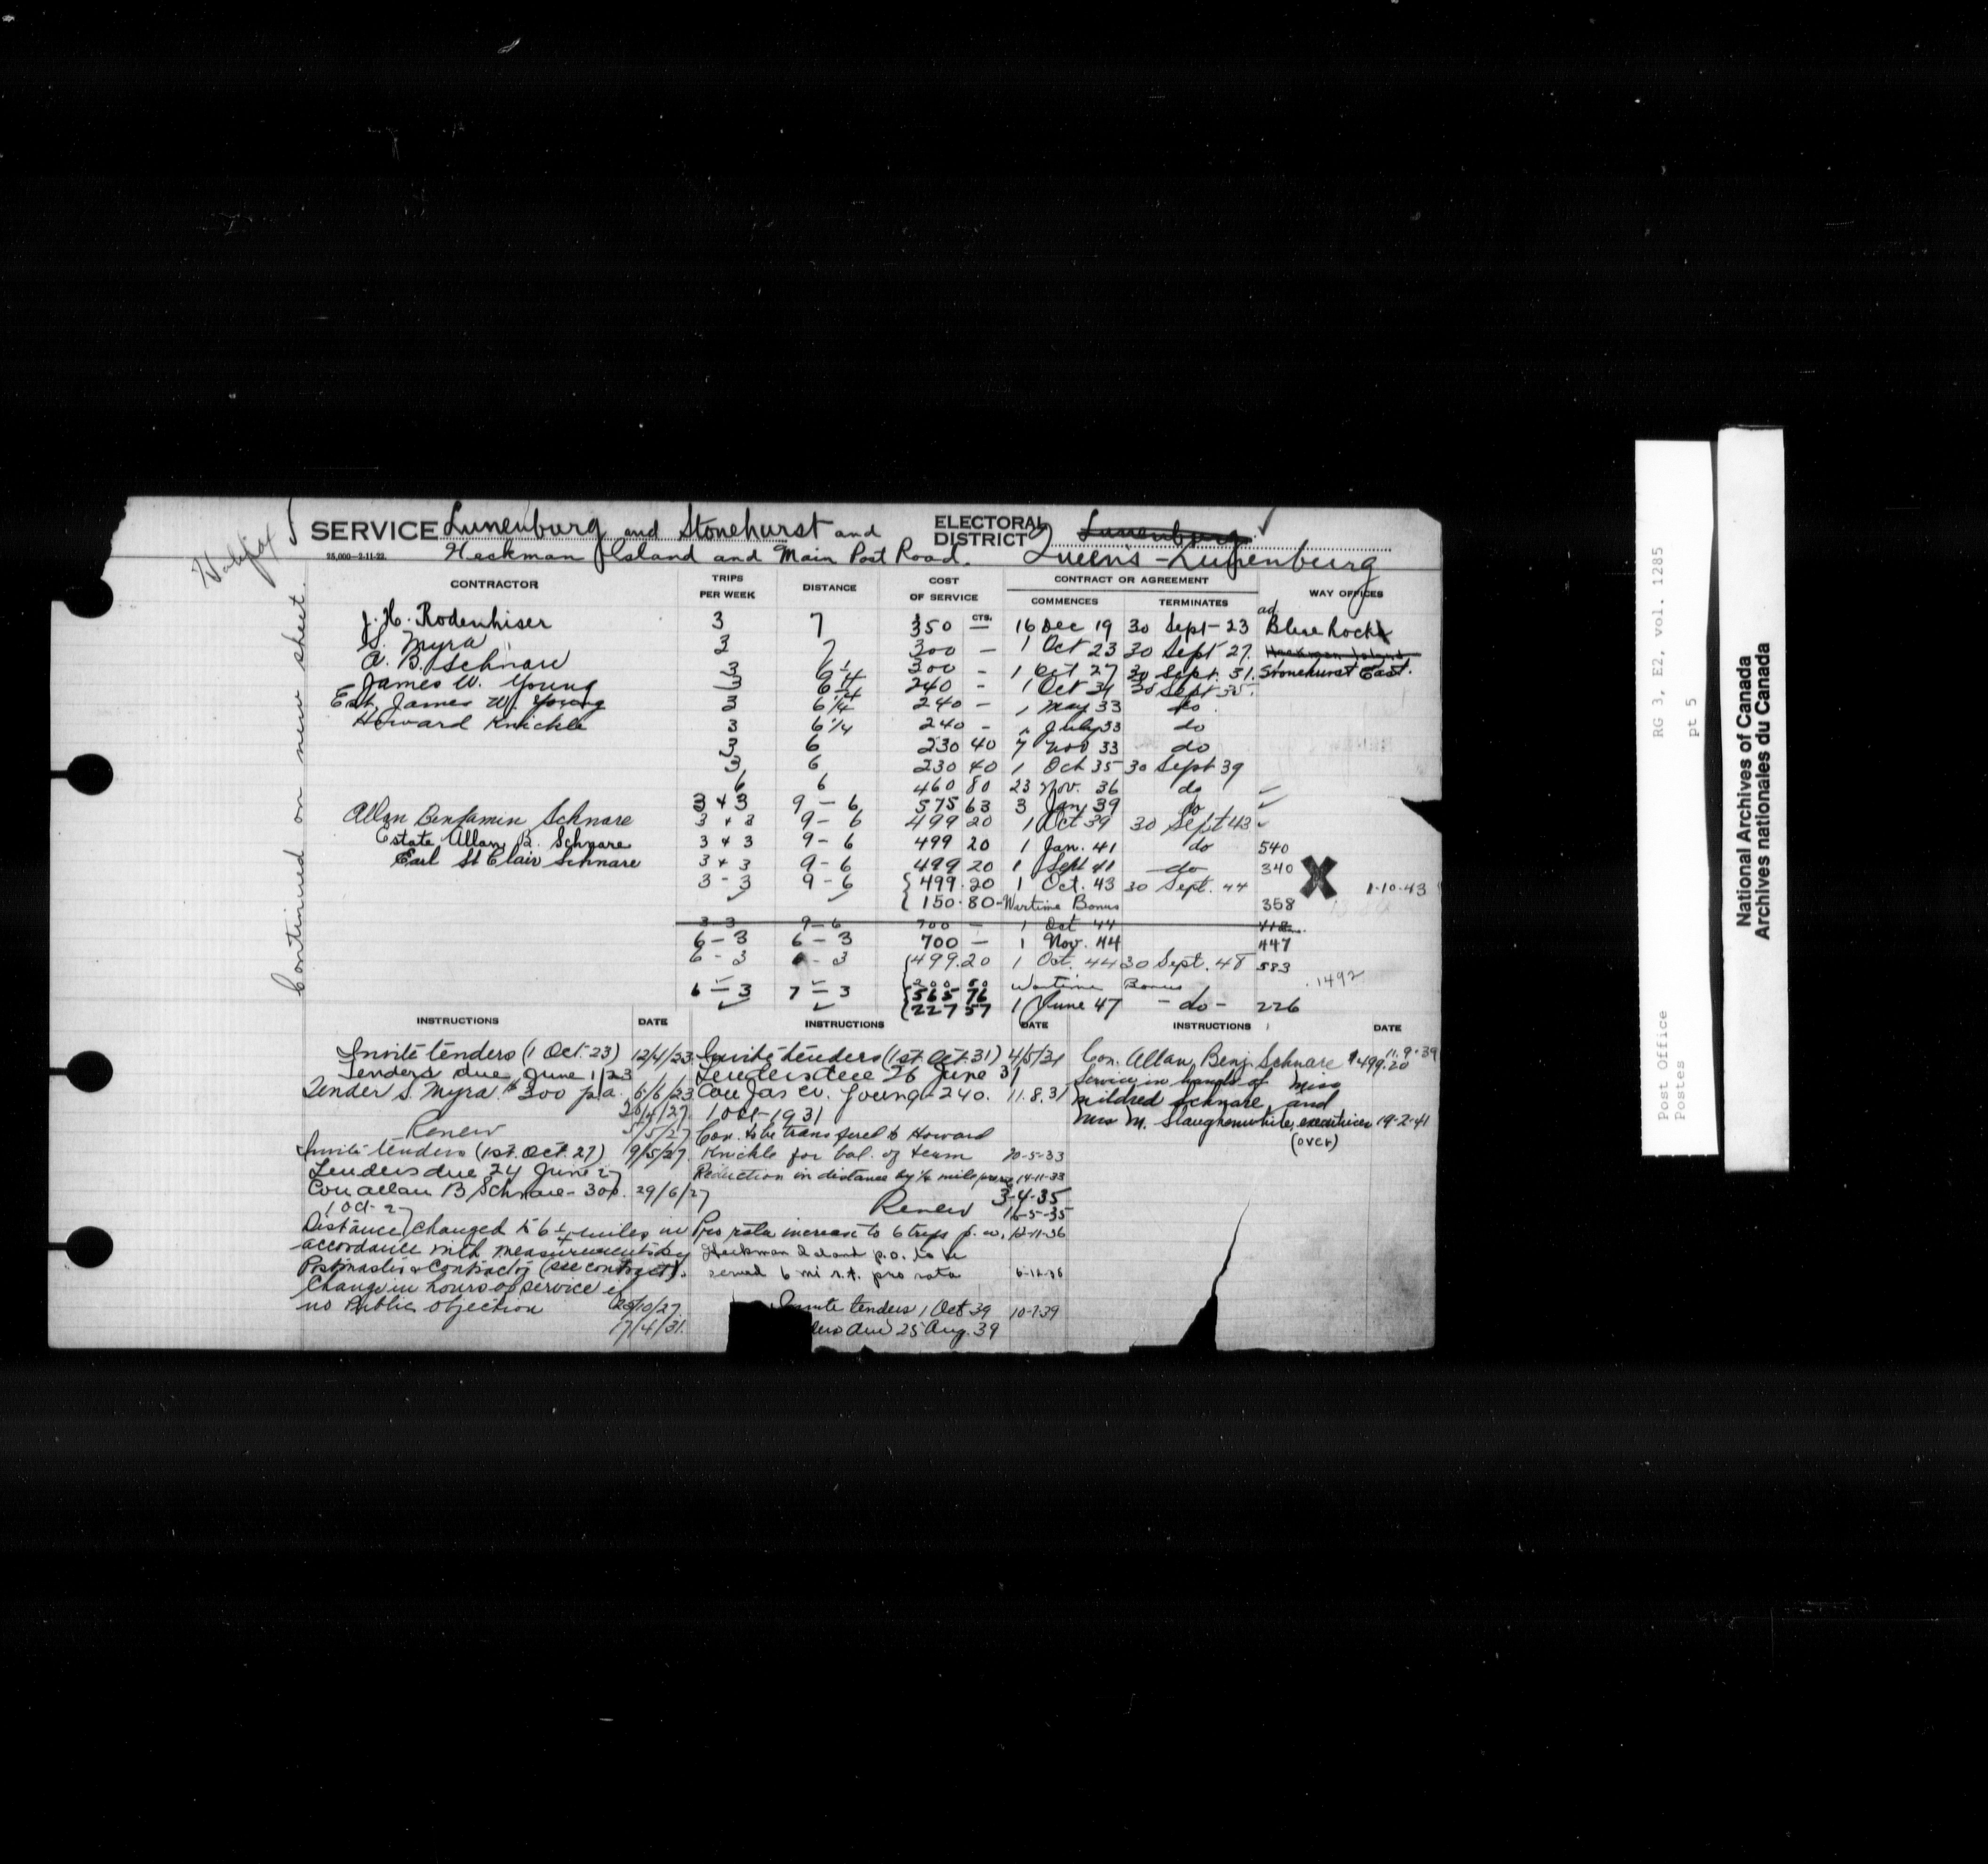 Halifax
Continued on new sheet.
SERVICE Lunenburg and Stonehurst and
25,000-2-11-22. Heckman Island and Main Post Road.
ELECTORAL DISTRICT Lunenburg
Queens-Lunenburg
CONTRACTOR TRIPS PER WEEK DISTANCE COST OF SERVICE CONTRACT OR AGREEMENT COMMENCES TERMINATES WAY OFFICES
$ CTS. ad
J. H. Rodenhiser 3 7 350 — 16 Dec 19 30 Sept-23 Blue Rock
S. Myra 3 7 300 — 1 Oct 23 30 Sept 27. Heckman Island
A. B. Schnare 3 6 1/4 300 - 1 Oct 27 30 Sept. 31. Stonehurst East.
James W. Young 3 6 1/4 240 - 1 Oct 31 30 Sept 35.
Est. James W. Young 3 6 1/4 240 - 1 May 33 do.
Howard Knickle 3 6 1/4 240 - " July 33 do
3 6 230 40 7 Nov 33 do
3 6 230 40 1 Oct 35 30 Sept 39
6 6 460 80 23 Nov. 36 do
3 + 3 9 - 6 575 63 3 Jan 39 do
Allan Benjamin Schnare 3 + 3 9 - 6 499 20 1 Oct 39 30 Sept 43
Estate Allan B. Schnare 3 + 3 9 - 6 499 20 1 Jan. 41 do 540
Earl St Clair Schnare 3 + 3 9 - 6 499 20 1 Sept 41 do 340 X
3 - 3 9 - 6 499.20 1 Oct. 43 30 Sept. 44 1-10-43
150.80 - Wartime Bonus 358
3-3 9-6 700 — 1 Oct 44 418
6 - 3 6 - 3 700 — 1 Nov. 44 447
6 - 3 6 - 3 499.20 1 Oct. 44 30 Sept. 48 583
200 80 Wartime Bonus .1492
6 - 3 7 - 3 565 76
227 57 1 June 47 - do - 226
INSTRUCTIONS DATE
Invite tenders (1 Oct. 23) 12/4/23
Tenders due June 1/23
Tender S. Myra $300 p.a. 6/6/23
26/4/27
Renew 5/5/27
Invite tenders (1st. Oct. 27) 9/5/27.
Tenders due 24 June 27
Con Allan B Schnare - 300. 29/6/27
1 Oct-27
Distance changed to 6 1/4 miles in
accordance with measurements by
Postmaster & Contractor (see contract).
Change in hours of service if
no Public objection 25/10/27
17/4/31.
INSTRUCTIONS DATE
Invite tenders (1st. Oct. 31) 4/5/31
Tenders due 26 June 31
Con Jas W. Young - 240. 11.8.31
1 Oct-1931
Con. to be transfered to Howard
Knickle for bal. of term 20-5-33
Reduction in distance by 1/4 mile 14-11-33
3-4-35
Renew 16-5-35
Pro rata increase to 6 trips p.w. 12-11-36
Heckman Island p.o. to be
served 6 mi r.t. pro rata
Invite tenders 1 Oct 39 10-7-39
ders due 25 Aug. 39
INSTRUCTIONS DATE
Con. Allan Benj. Schnare $499.20 11.9.39
Service in hands of Miss
Mildred Schnare, and
Mrs M. Slaughenwhite, executrices 19-2-41
(over)
Post Office RG 3, E2, vol. 1285
Postes pt 5
National Archives of Canada
Archives nationales du Canada